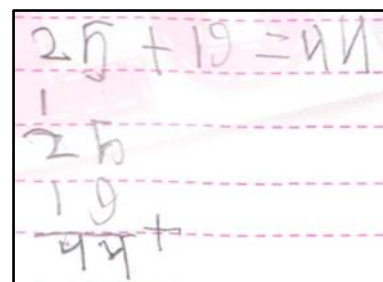 25 + 19 = 44
1
25
19
44 +